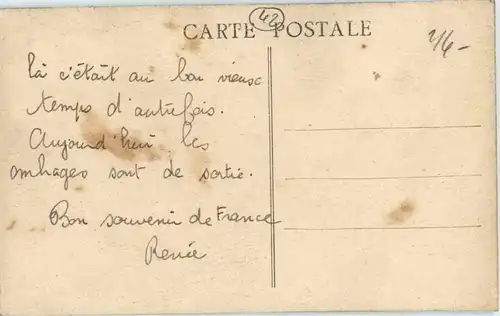 CARTE POSTALE
42
2/6-
Là c'était au bon vieux
temps d'autrefois.
Aujourd'hui les
ombrages sont de sortie.
Bon souvenir de France
Renée